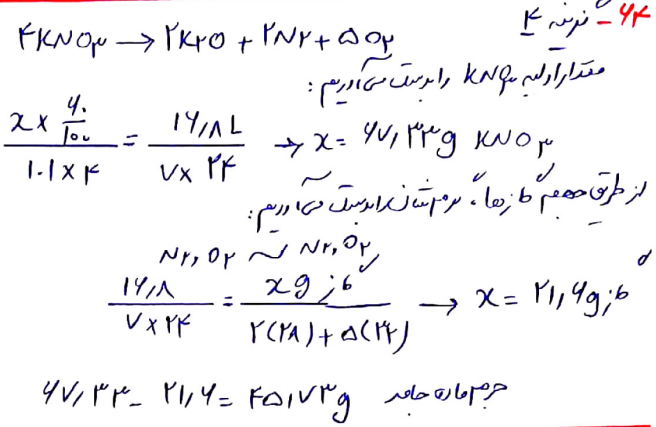 ۶۴ - گزینه ۴
۴KNO۳ → ۲K۲O + ۲N۲ + ۵O۲
مقدار اولیه KNO۳ را بدست می‌آوریم:
x × ۶۰/۱۰۰ / ۱۰۱×۴ = ۱۶/۸ L / ۷×۲۴ → x = ۶۷/۳۳g KNO۳
از طریق حجم گازها، جرم‌شان را بدست می‌آوریم:
N۲, O۲ ~ N۲, O۲
۱۶/۸ / ۷×۲۴ = x g گاز / ۲(۲۸)+۵(۳۲) → x = ۲۱/۶g گاز
۶۷/۳۳ - ۲۱/۶ = ۴۵/۷۳g جرم ماده جامد